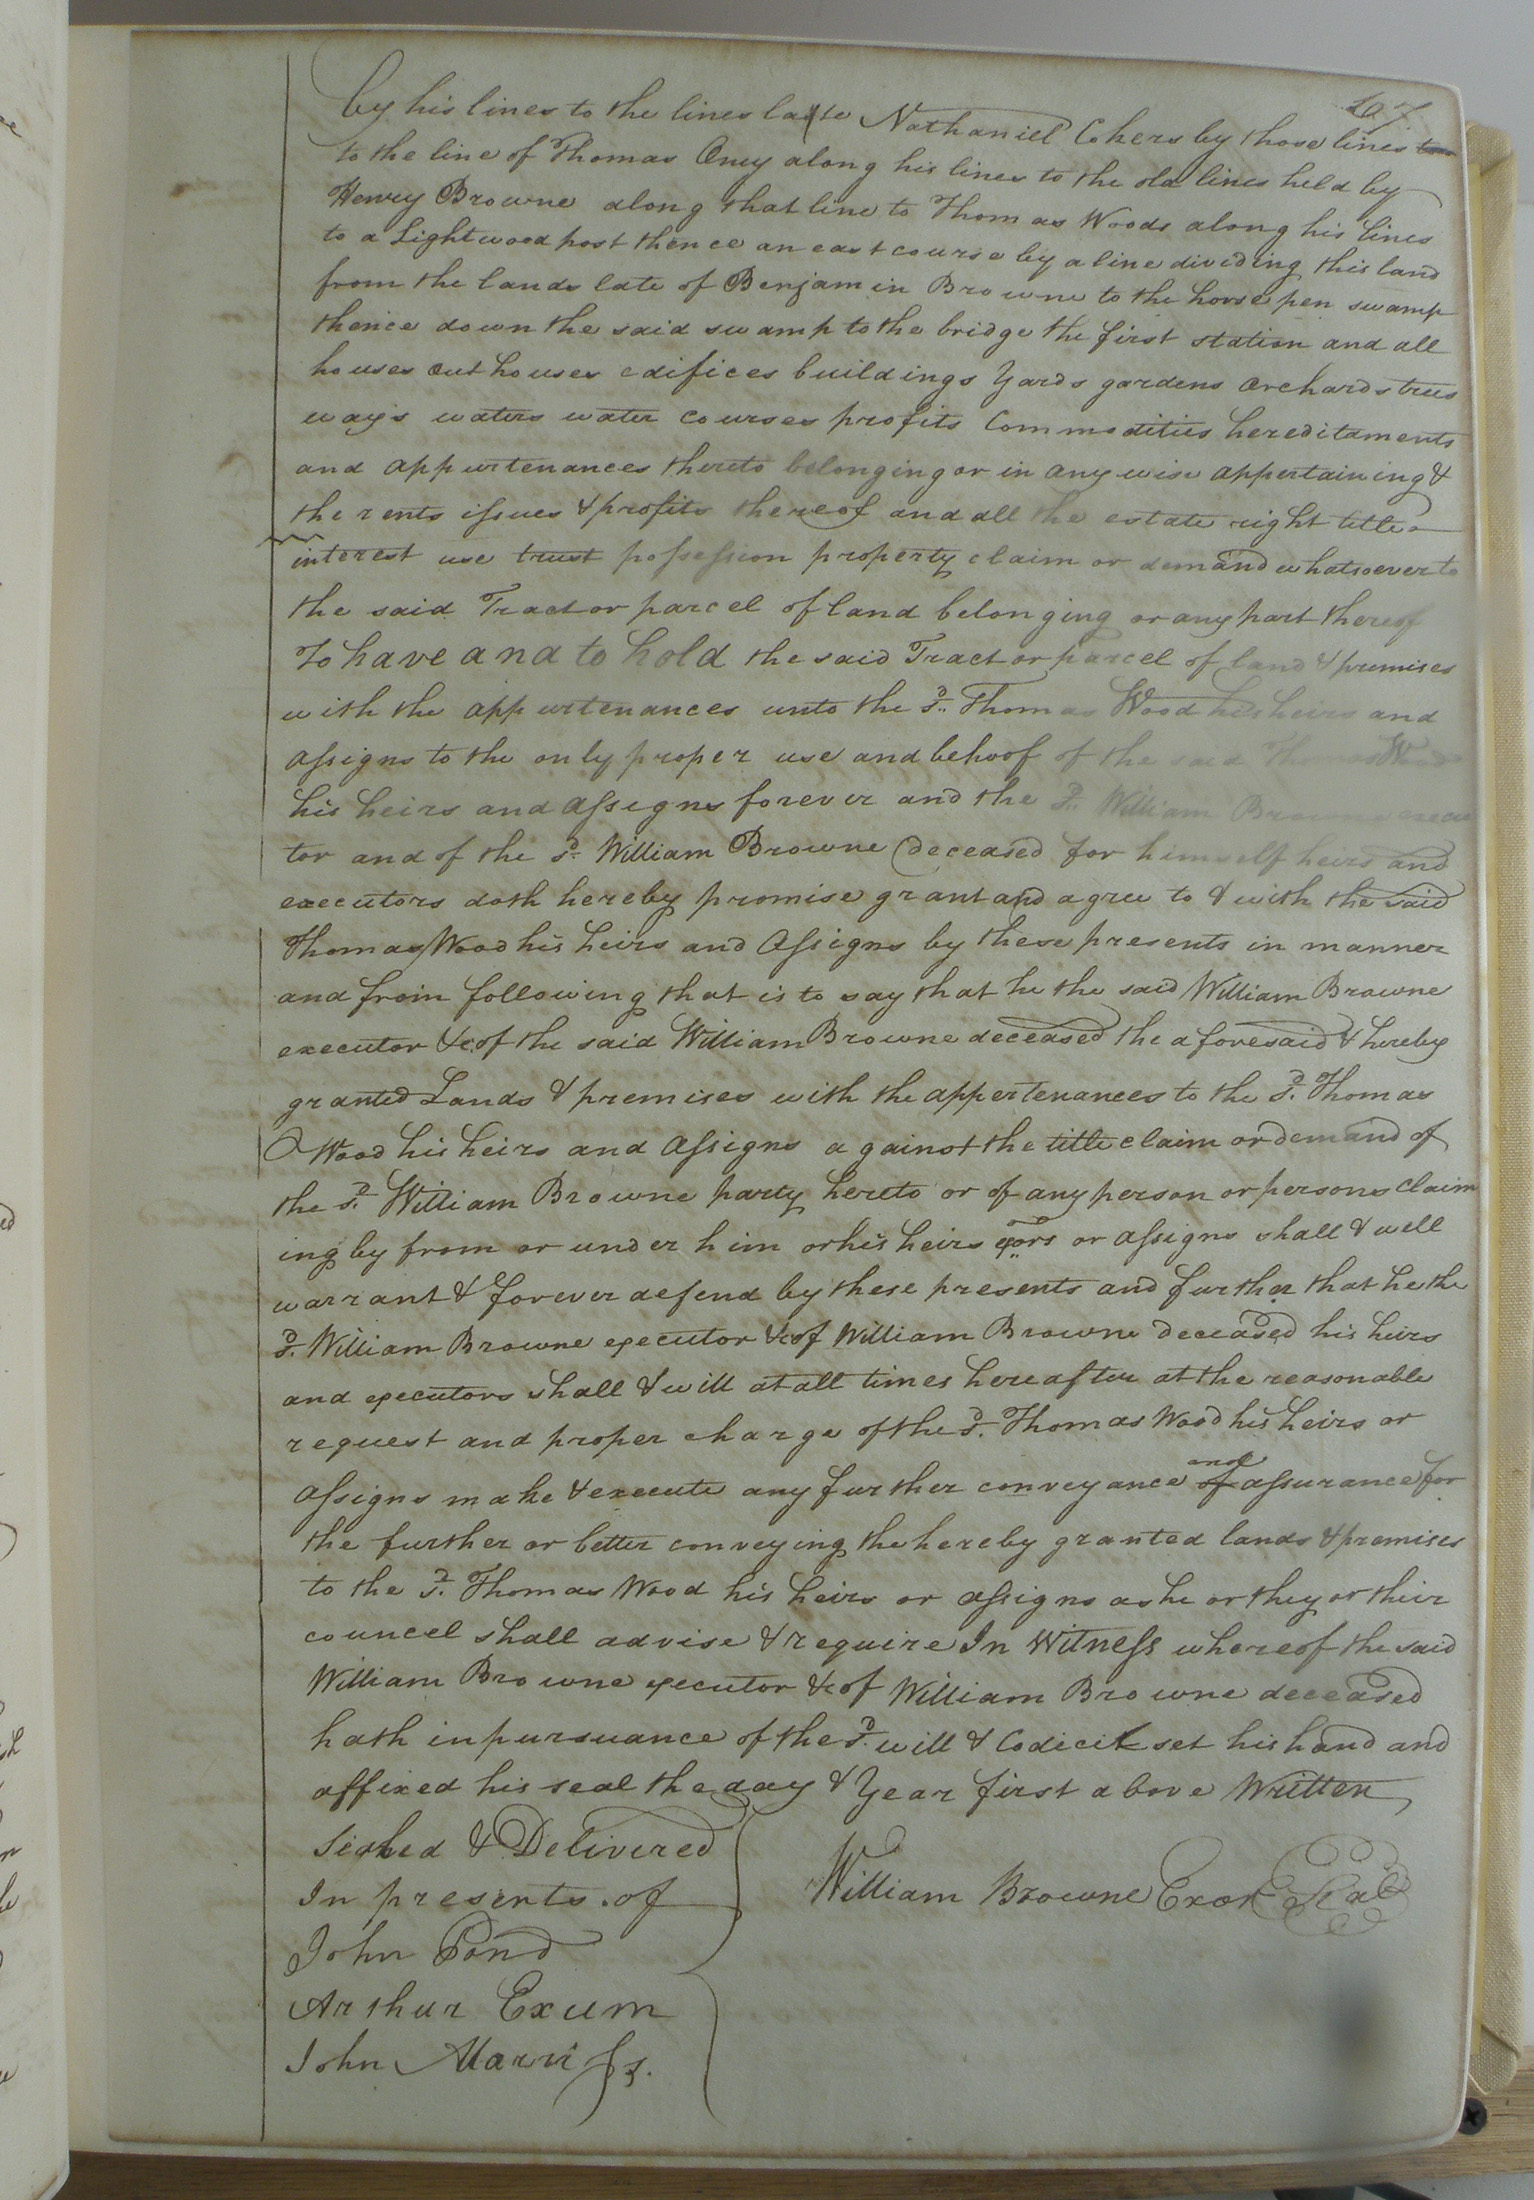 107
by his lines to the lines late Nathaniel Cokers by those lines
to the line of Thomas Oney along his lines to the old lines held by
Henry Browne along that line to Thomas Woods along his lines
to a Lightwood post thence an east course by a line dividing this land
from the lands late of Benjamin Browne to the horse pen swamp
thence down the said swamp to the bridge the first station and all
houses outhouses edifices buildings Yards gardens Orchards trees
ways waters water courses profits Commodities hereditaments
and appurtenances thereto belonging or in any wise appertaining &
the rents issues & profits thereof and all the estate right title
interest use trust possession property claim or demand whatsoever to
the said Tract or parcel of land belonging or any part thereof
To have and to hold the said Tract or parcel of land & premises
with the appurtenances unto the sd. Thomas Wood his heirs and
assigns to the only proper use and behoof of the said Thomas Wood
his heirs and assigns forever and the sd. William Browne execu
tor and of the sd. William Browne deceased for himself heirs and
executors doth hereby promise grant and agree to & with the said
Thomas Wood his heirs and assigns by these presents in manner
and from following that is to say that he the said William Browne
executor &c of the said William Browne deceased the aforesaid & hereby
granted Lands & premises with the appertenances to the sd. Thomas
Wood his heirs and assigns against the title claim or demand of
the sd. William Browne party hereto or of any person or persons claim
ing by from or under him or his heirs exors or assigns shall & well
warrant & forever defend by these presents and further that he the
sd. William Browne executor &c of William Browne deceased his heirs
and executors shall & will at all times hereafter at the reasonable
request and proper charge of the sd. Thomas Wood his heirs or
assigns make & execute any further conveyance and of assurance for
the further or better conveying the hereby granted lands & premises
to the sd. Thomas Wood his heirs or assigns as he or they or their
councel shall advise & require In Witness whereof the said
William Browne executor &c of William Browne deceased
hath in pursuance of the sd. will & Codicil set his hand and
affixed his seal the day & Year first above Written
Sealed & Delivered
In presents of
William Browne Exor Seal
John Pond
Arthur Exum
John Marriss.